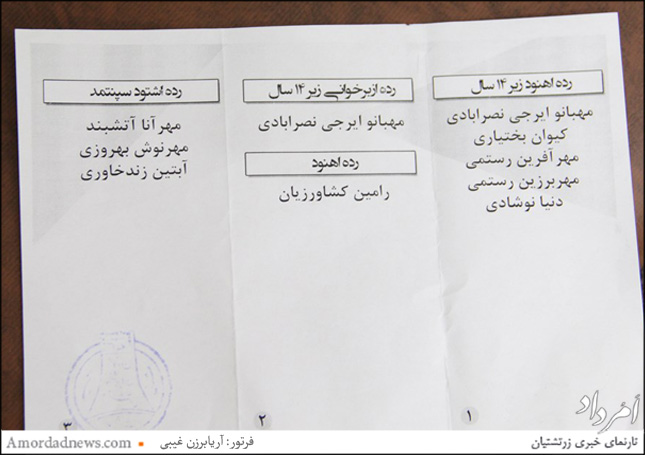 رده اهنود زیر ۱۴ سال
مهبانو ایرجی نصرابادی
کیوان بختیاری
مهرآفرین رستمی
مهربرزین رستمی
دنیا نوشادی
۱
رده ازبرخوانی زیر ۱۴ سال
مهبانو ایرجی نصرابادی
رده اهنود
رامین کشاورزیان
۲
رده اشتود سپنتمد
مهرآنا آتشبند
مهرنوش بهروزی
آبتین زندخاوری
۳
اَمرداد
تارنمای خبری زرتشتیان
فرتور: آریابرزن غیبی
Amordadnews.com